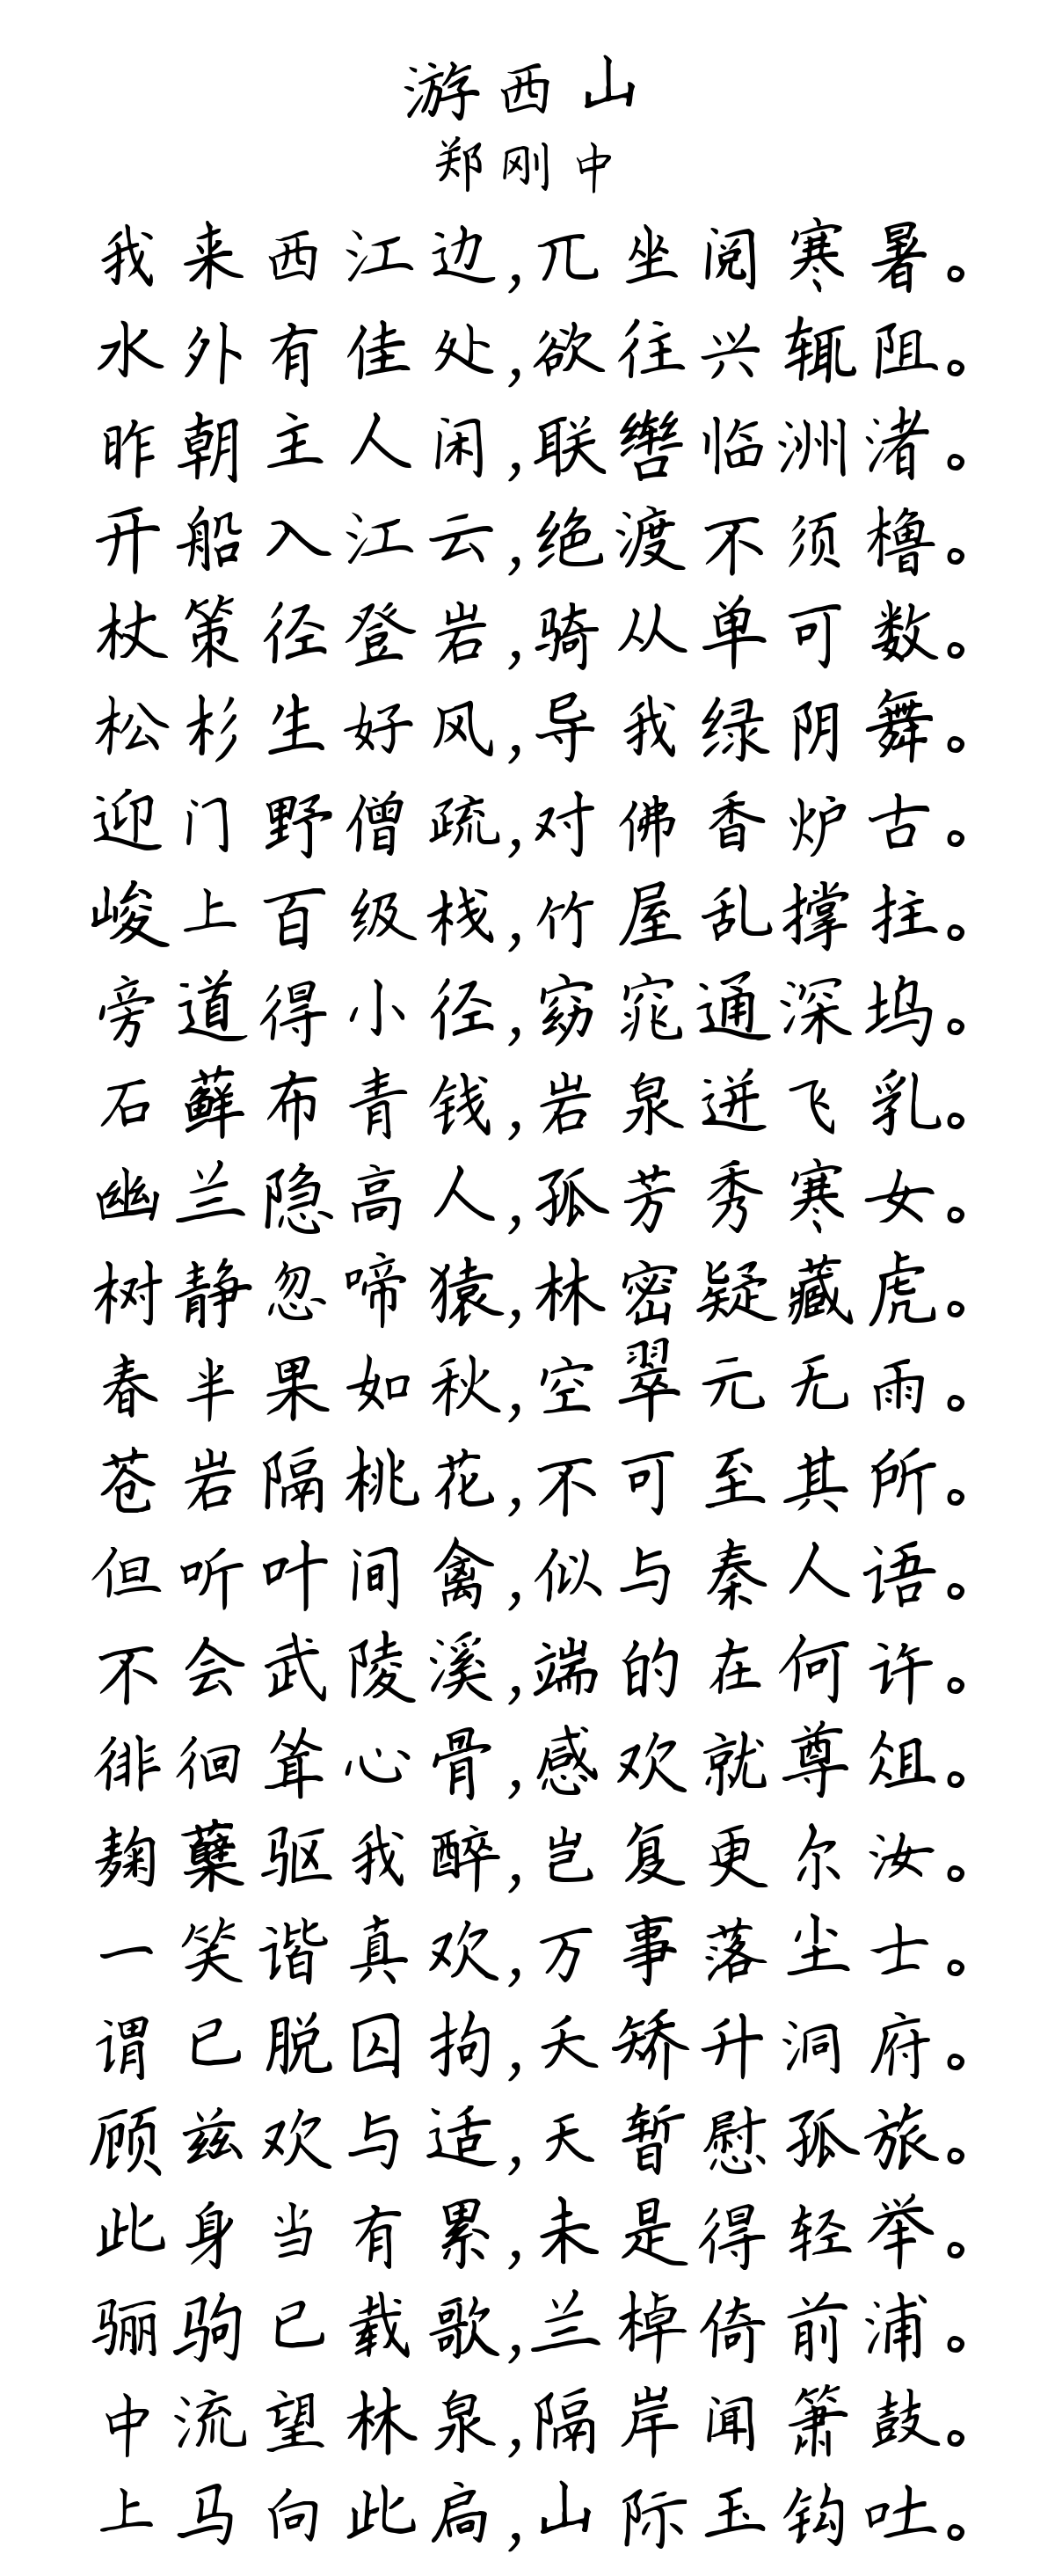 游西山
郑刚中
我来西江边,兀坐阅寒暑。
水外有佳处,欲往兴辄阻。
昨朝主人闲,联辔临洲渚。
开船入江云,绝渡不须橹。
杖策径登岩,骑从单可数。
松杉生好风,导我绿阴舞。
迎门野僧疏,对佛香炉古。
峻上百级栈,竹屋乱撑拄。
旁道得小径,窈窕通深坞。
石藓布青钱,岩泉迸飞乳。
幽兰隐高人,孤芳秀寒女。
树静忽啼猿,林密疑藏虎。
春半果如秋,空翠元无雨。
苍岩隔桃花,不可至其所。
但听叶间禽,似与秦人语。
不会武陵溪,端的在何许。
徘徊耸心骨,感欢就尊俎。
麹糵驱我醉,岂复更尔汝。
一笑谐真欢,万事落尘土。
谓已脱囚拘,夭矫升洞府。
顾兹欢与适,天暂慰孤旅。
此身当有累,未是得轻举。
骊驹已载歌,兰棹倚前浦。
中流望林泉,隔岸闻箫鼓。
上马向此扃,山际玉钩吐。